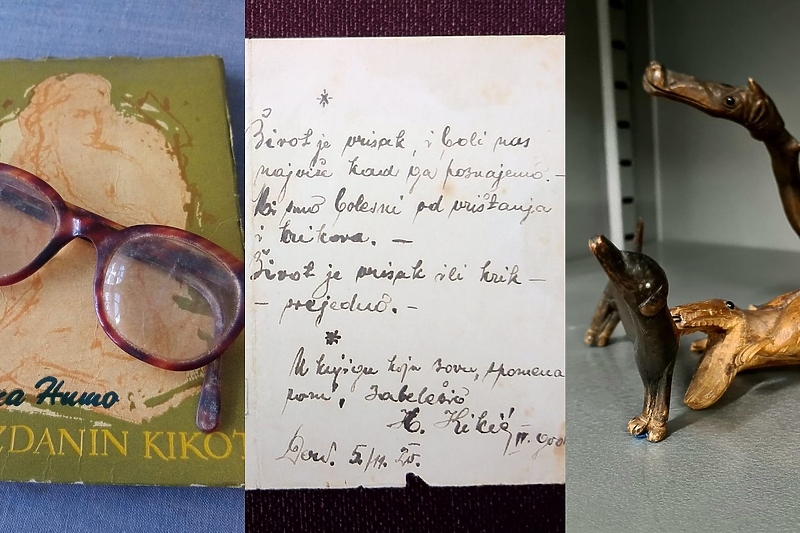 za Humo
ZDANIN KIKOT
Život je vrisak, i boli nas
najviše kad ga poznajemo. -
Mi smo bolesni od vrištanja
i krikova. -
Život je vrisak ili krik -
- svejedno. -
U knjigu koju zovu, spomena
rom, zabeležio
H. Kikić, IV. god
5/11. 25.